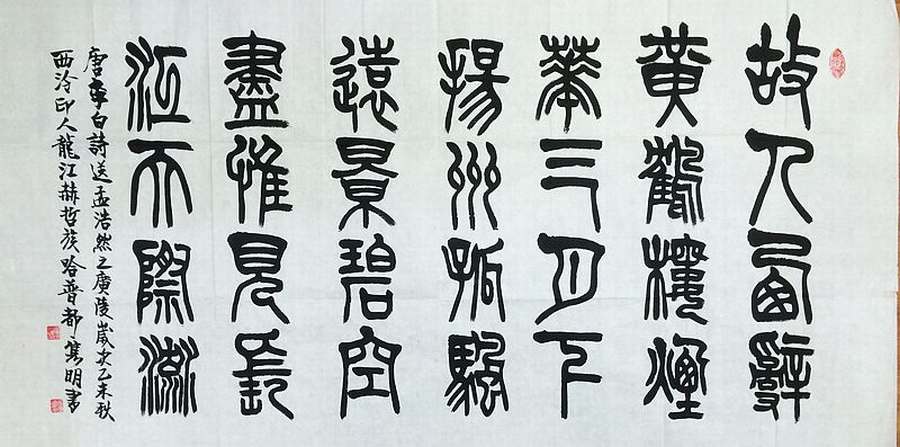 故人西辭
黄鶴樓煙
華三月下
揚州孤騆
遠景碧空
盡惟見長
江天際流
唐李白詩送孟浩然之廣陵歲次乙未秋
西泠印人龍江赫哲族哈普都·雋明書